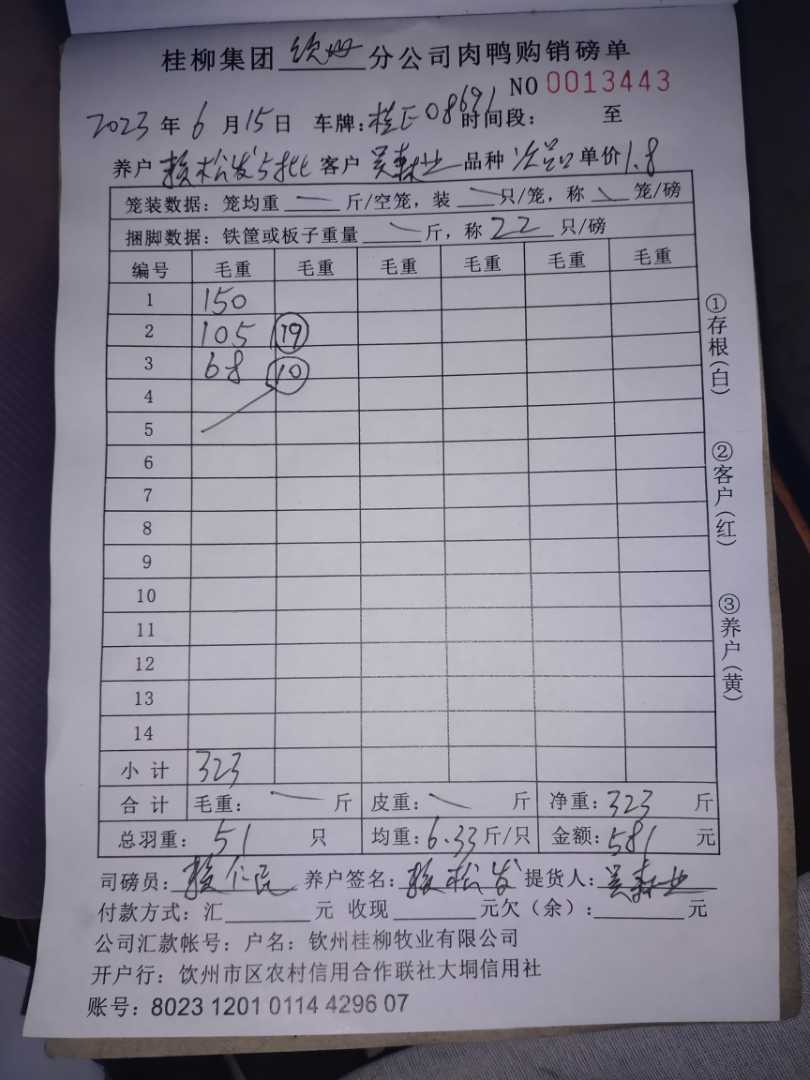 桂柳集团 钦州 分公司肉鸭购销磅单
NO 0013443
2023 年 6 月 15 日 车牌: 桂E08691 时间段: 至
养户 赖松发5批 客户 吴森业 品种 次品 单价 1.8
笼装数据: 笼均重 — 斤/空笼, 装 — 只/笼, 称 — 笼/磅
捆脚数据: 铁筐或板子重量 — 斤, 称 22 只/磅
编号 毛重 毛重 毛重 毛重 毛重 毛重
1 150
2 105 ⑲
3 68 ⑩
4
5
6
7
8
9
10
11
12
13
14
小 计 323
合 计 毛重: — 斤 皮重: — 斤 净重: 323 斤
总羽重: 51 只 均重: 6.33 斤/只 金额: 581 元
司磅员: 赖仁民 养户签名: 赖松发 提货人: 吴森业
付款方式: 汇 元 收现 元欠（余）: 元
公司汇款帐号: 户名: 钦州桂柳牧业有限公司
开户行: 饮州市区农村信用合作联社大垌信用社
账号: 8023 1201 0114 4296 07
①存根(白)
②客户(红)
③养户(黄)